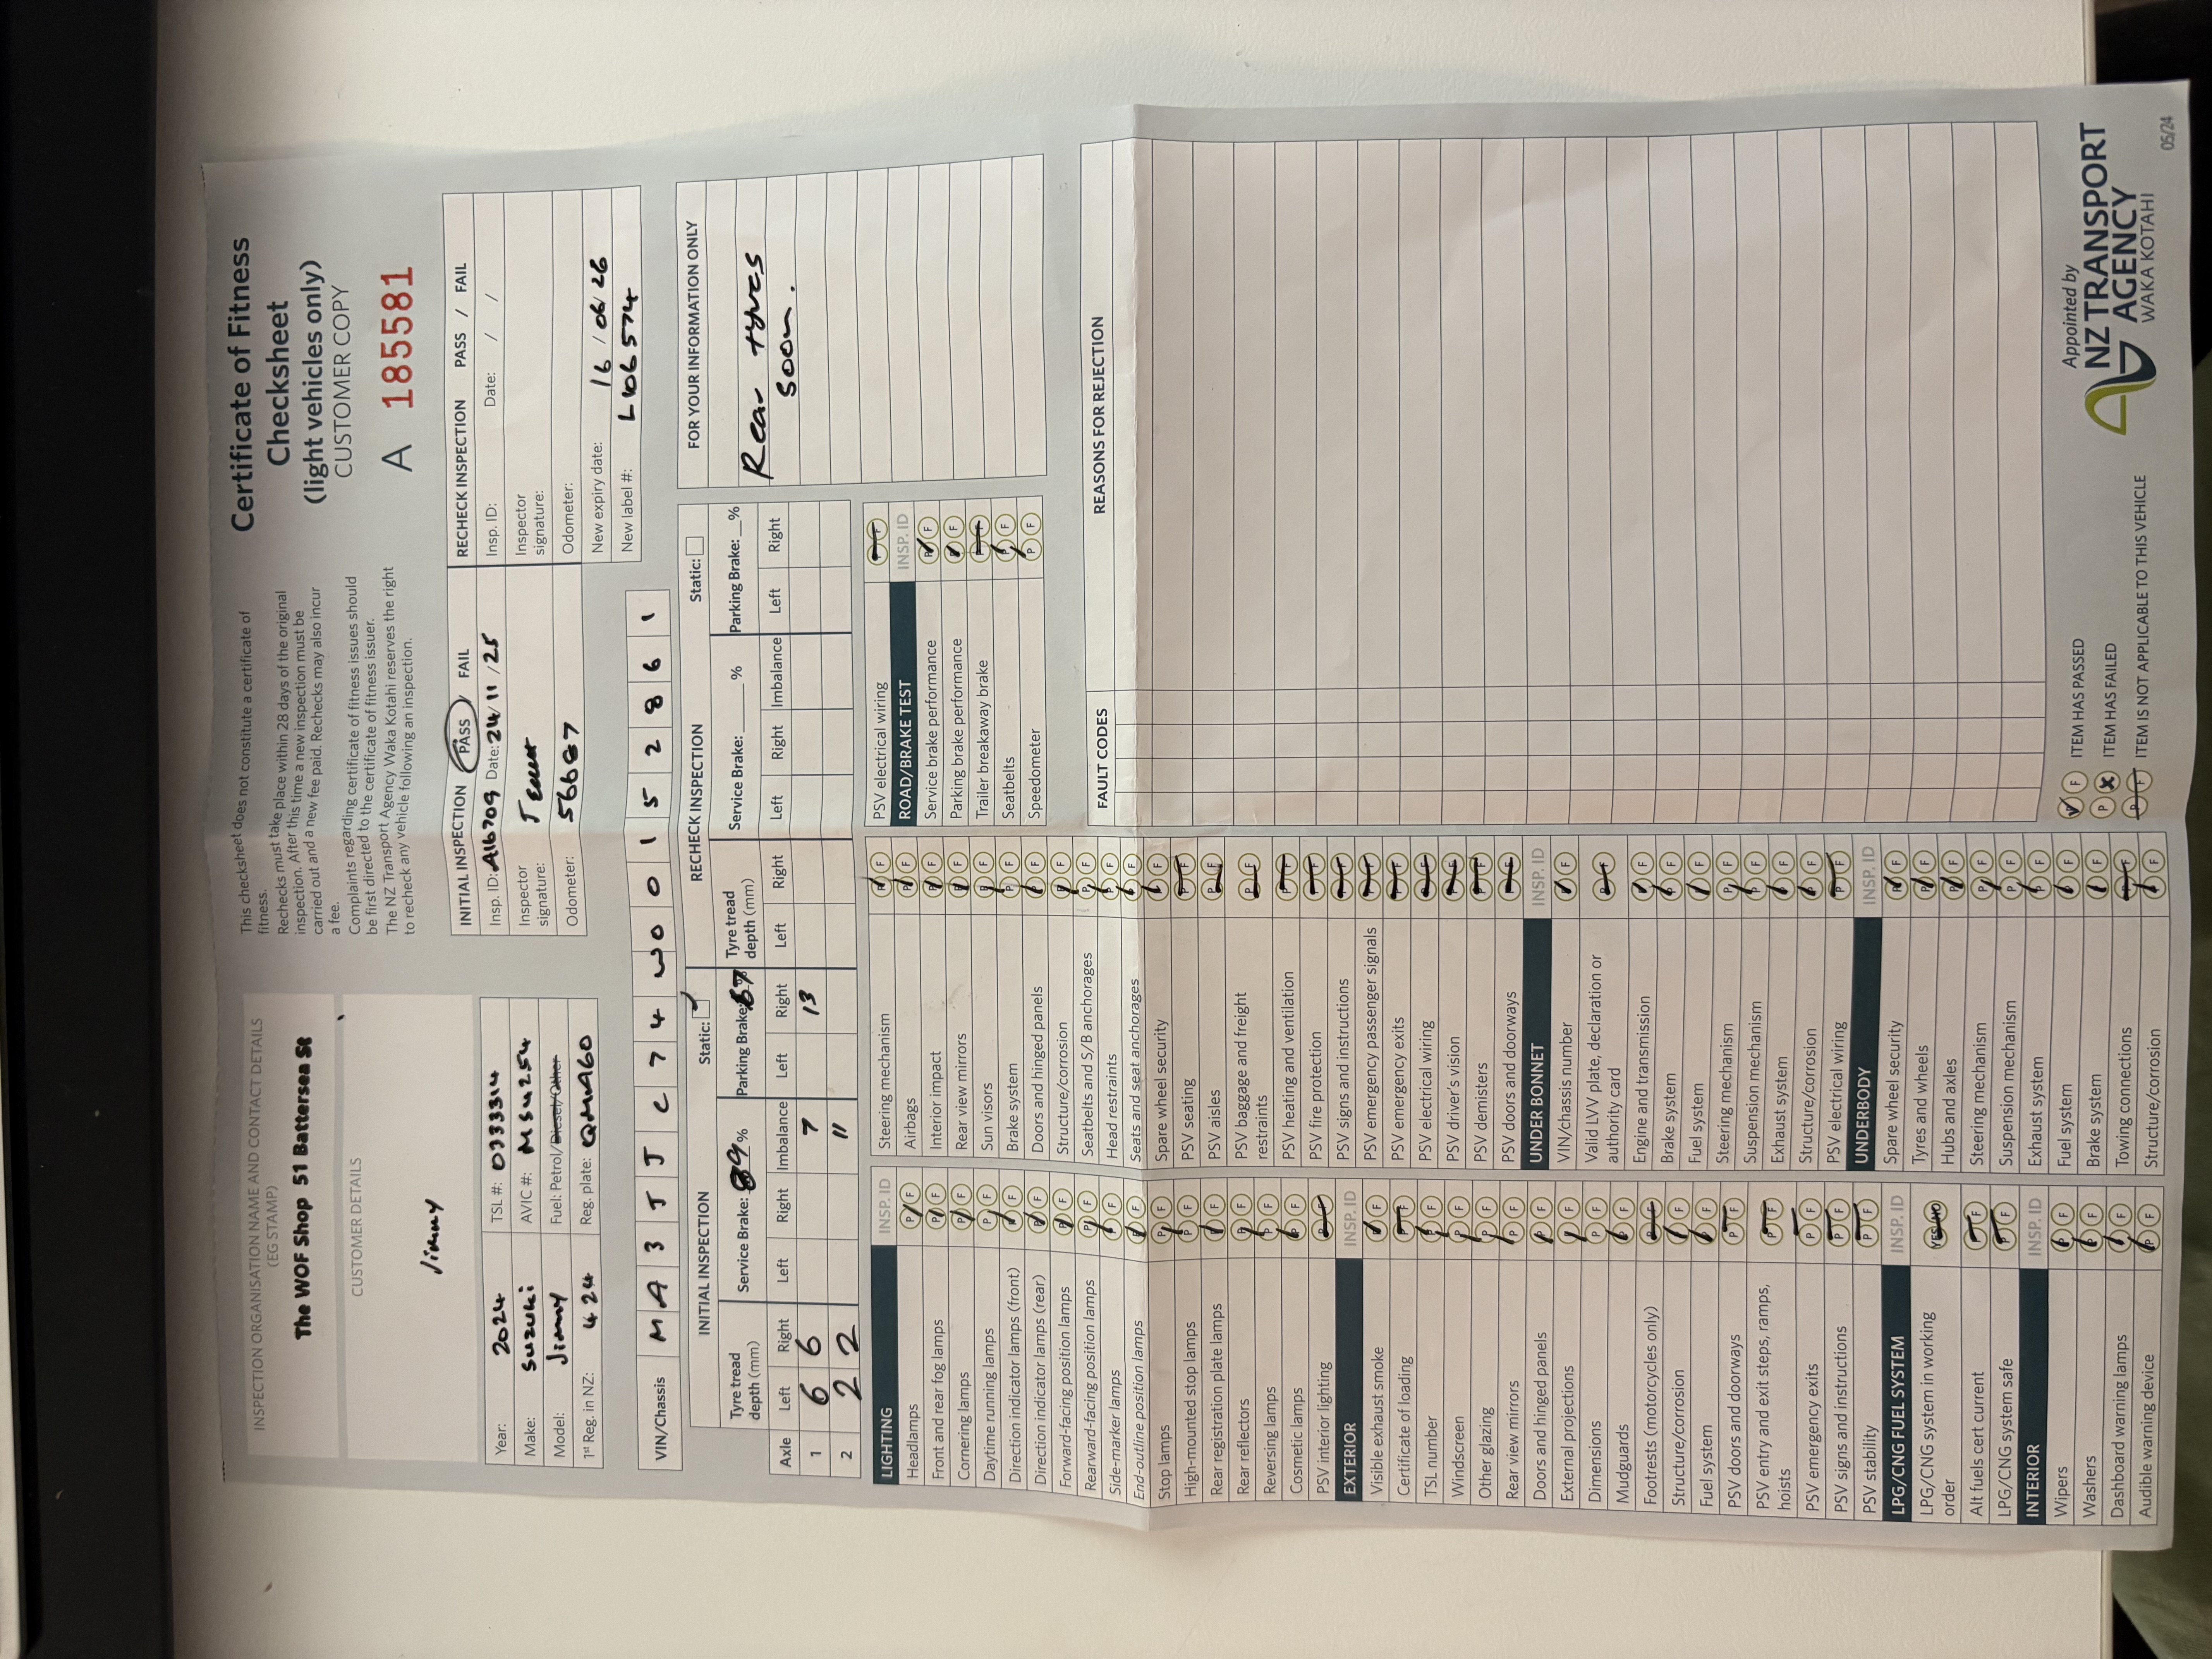 INSPECTION ORGANISATION NAME AND CONTACT DETAILS
(EG STAMP)
The WOF Shop 51 Battersea St
CUSTOMER DETAILS
Jimny
This checksheet does not constitute a certificate of
fitness.
Rechecks must take place within 28 days of the original
inspection. After this time a new inspection must be
carried out and a new fee paid. Rechecks may also incur
a fee.
Complaints regarding certificate of fitness issues should
be first directed to the certificate of fitness issuer.
The NZ Transport Agency Waka Kotahi reserves the right
to recheck any vehicle following an inspection.
Certificate of Fitness
Checksheet
(light vehicles only)
CUSTOMER COPY
A 185581
Year: 2024 TSL #: 0733314
Make: Suzuki AVIC #: MSU254
Model: Jimny Fuel: Petrol/Diesel/Other
1st Reg. in NZ: 4 24 Reg. plate: QMM960
INITIAL INSPECTION PASS FAIL
Insp. ID: A16709 Date: 24/11/25
Inspector
signature:
Odometer: 56687
RECHECK INSPECTION PASS / FAIL
Insp. ID: Date: / /
Inspector
signature:
Odometer:
New expiry date: 16/06/26
New label #: L406574
VIN/Chassis M A 3 J J C 7 4 W 0 0 1 5 2 8 6 1
INITIAL INSPECTION Static:
Tyre tread
depth (mm) Service Brake: 89% Parking Brake: 67
Axle Left Right Left Right Imbalance Left Right
1 6 6 7 13
2 2 2 11
RECHECK INSPECTION Static:
Tyre tread
depth (mm) Service Brake: ___% Parking Brake: __%
Left Right Left Right Imbalance Left Right
FOR YOUR INFORMATION ONLY
Rear tyres
soon.
LIGHTING INSP. ID
Headlamps P F
Front and rear fog lamps P F
Cornering lamps P F
Daytime running lamps P F
Direction indicator lamps (front) P F
Direction indicator lamps (rear) P F
Forward-facing position lamps P F
Rearward-facing position lamps P F
Side-marker lamps P F
End-outline position lamps P F
Stop lamps P F
High-mounted stop lamps P F
Rear registration plate lamps P F
Rear reflectors P F
Reversing lamps P F
Cosmetic lamps P F
PSV interior lighting P F
EXTERIOR INSP. ID
Visible exhaust smoke P F
Certificate of loading P F
TSL number P F
Windscreen P F
Other glazing P F
Rear view mirrors P F
Doors and hinged panels P F
External projections P F
Dimensions P F
Mudguards P F
Footrests (motorcycles only) P F
Structure/corrosion P F
Fuel system P F
PSV doors and doorways P F
PSV entry and exit steps, ramps,
hoists P F
PSV emergency exits P F
PSV signs and instructions P F
PSV stability P F
LPG/CNG FUEL SYSTEM INSP. ID
LPG/CNG system in working
order YES NO
Alt fuels cert current P F
LPG/CNG system safe P F
INTERIOR INSP. ID
Wipers P F
Washers P F
Dashboard warning lamps P F
Audible warning device P F
Steering mechanism P F
Airbags P F
Interior impact P F
Rear view mirrors P F
Sun visors P F
Brake system P F
Doors and hinged panels P F
Structure/corrosion P F
Seatbelts and S/B anchorages P F
Head restraints P F
Seats and seat anchorages P F
Spare wheel security P F
PSV seating P F
PSV aisles P F
PSV baggage and freight
restraints P F
PSV heating and ventilation P F
PSV fire protection P F
PSV signs and instructions P F
PSV emergency passenger signals P F
PSV emergency exits P F
PSV electrical wiring P F
PSV driver's vision P F
PSV demisters P F
PSV doors and doorways P F
UNDER BONNET INSP. ID
VIN/chassis number P F
Valid LVV plate, declaration or
authority card P F
Engine and transmission P F
Brake system P F
Fuel system P F
Steering mechanism P F
Suspension mechanism P F
Exhaust system P F
Structure/corrosion P F
PSV electrical wiring P F
UNDERBODY INSP. ID
Spare wheel security P F
Tyres and wheels P F
Hubs and axles P F
Steering mechanism P F
Suspension mechanism P F
Exhaust system P F
Fuel system P F
Brake system P F
Towing connections P F
Structure/corrosion P F
PSV electrical wiring P F
ROAD/BRAKE TEST INSP. ID
Service brake performance P F
Parking brake performance P F
Trailer breakaway brake P F
Seatbelts P F
Speedometer P F
FAULT CODES REASONS FOR REJECTION
P F ITEM HAS PASSED
P F ITEM HAS FAILED
P F ITEM IS NOT APPLICABLE TO THIS VEHICLE
Appointed by
NZ TRANSPORT
AGENCY
WAKA KOTAHI
05/24